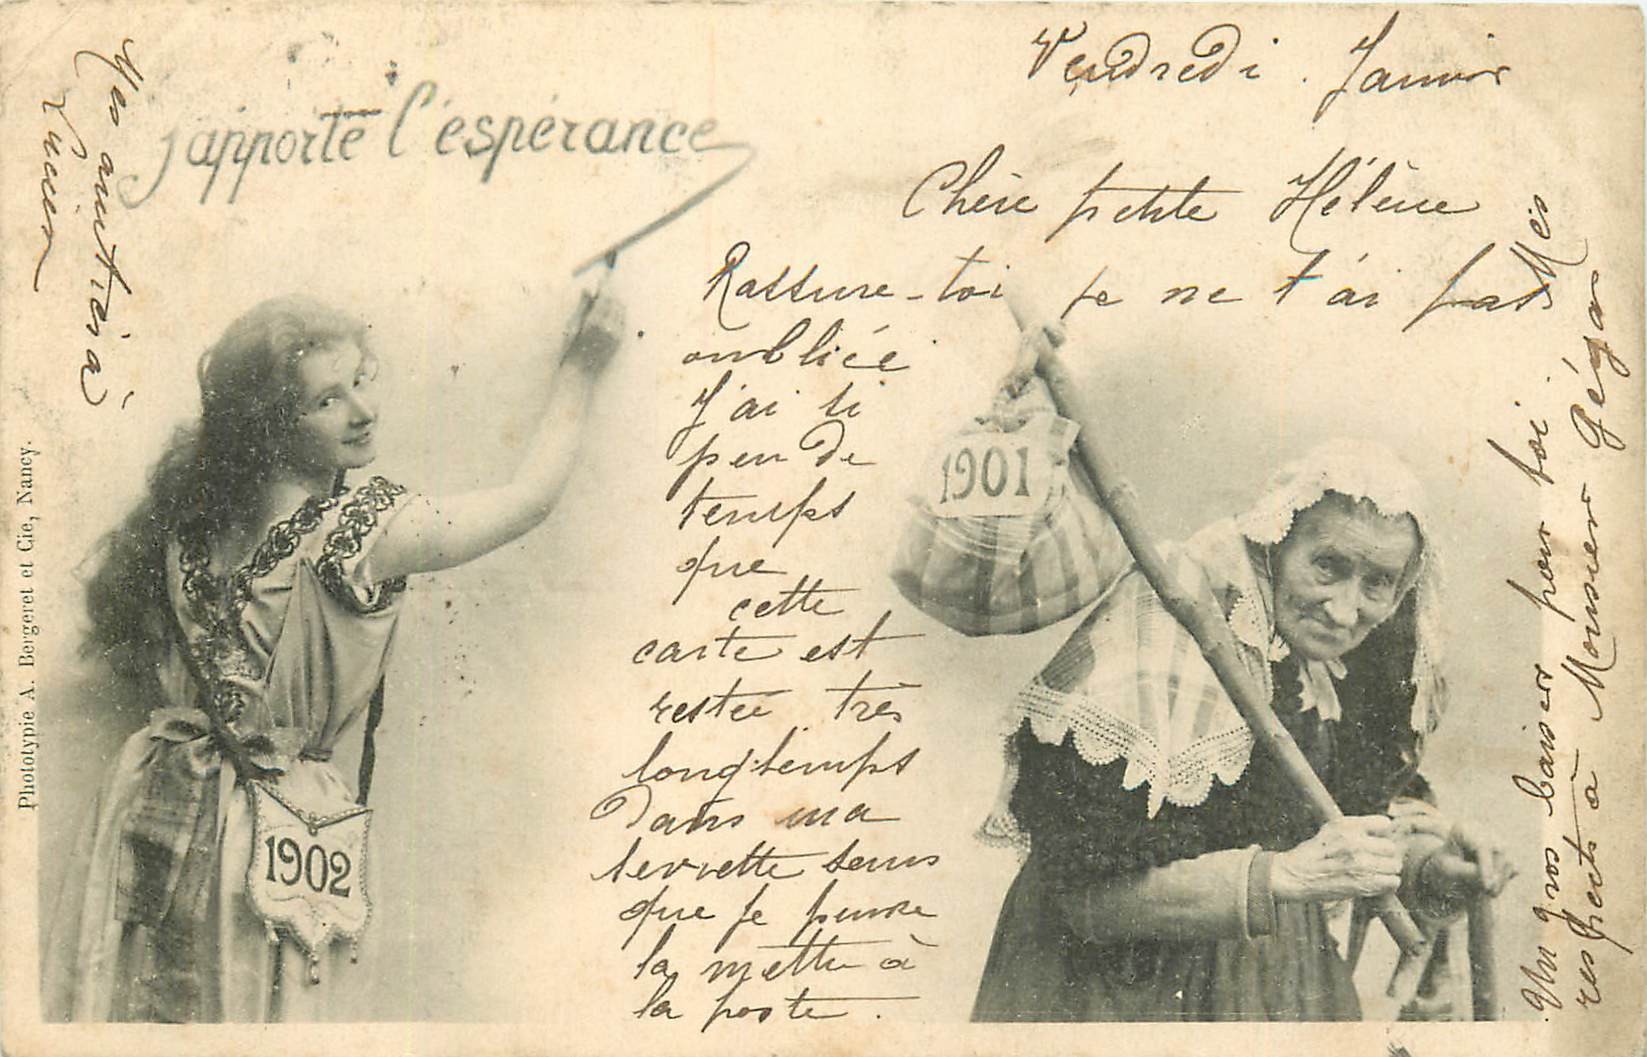 j'apporte l'éspérance
Vendredi . Janvier
Chère petite Hélène
Rassure-toi je ne t'ai pas
oubliée
J'ai si
peu de
temps
que
cette
carte est
restée très
longtemps
dans ma
serviette sans
que je puisse
la mettre à
la poste.
Un gros baiser pour toi. Mes
respects à Monsieur
Mes amitiés à
Lucien
1901
1902
Phototypie A. Bergeret et Cie, Nancy.